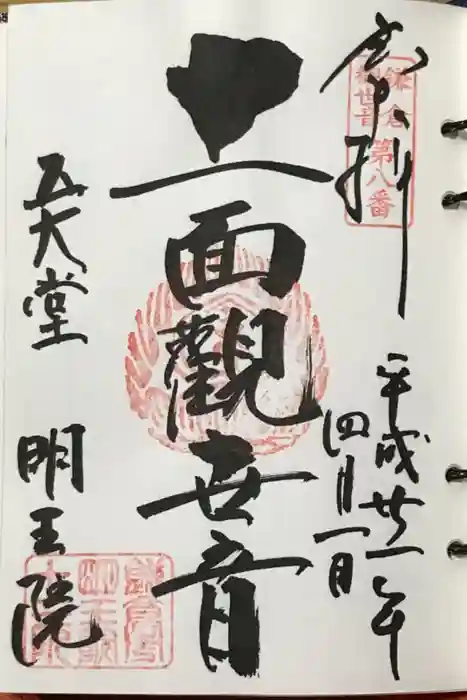 奉拝
鎌倉
觀世音
第八番
平成廿一年
四月一日
十一面觀世音
五大堂
明王院